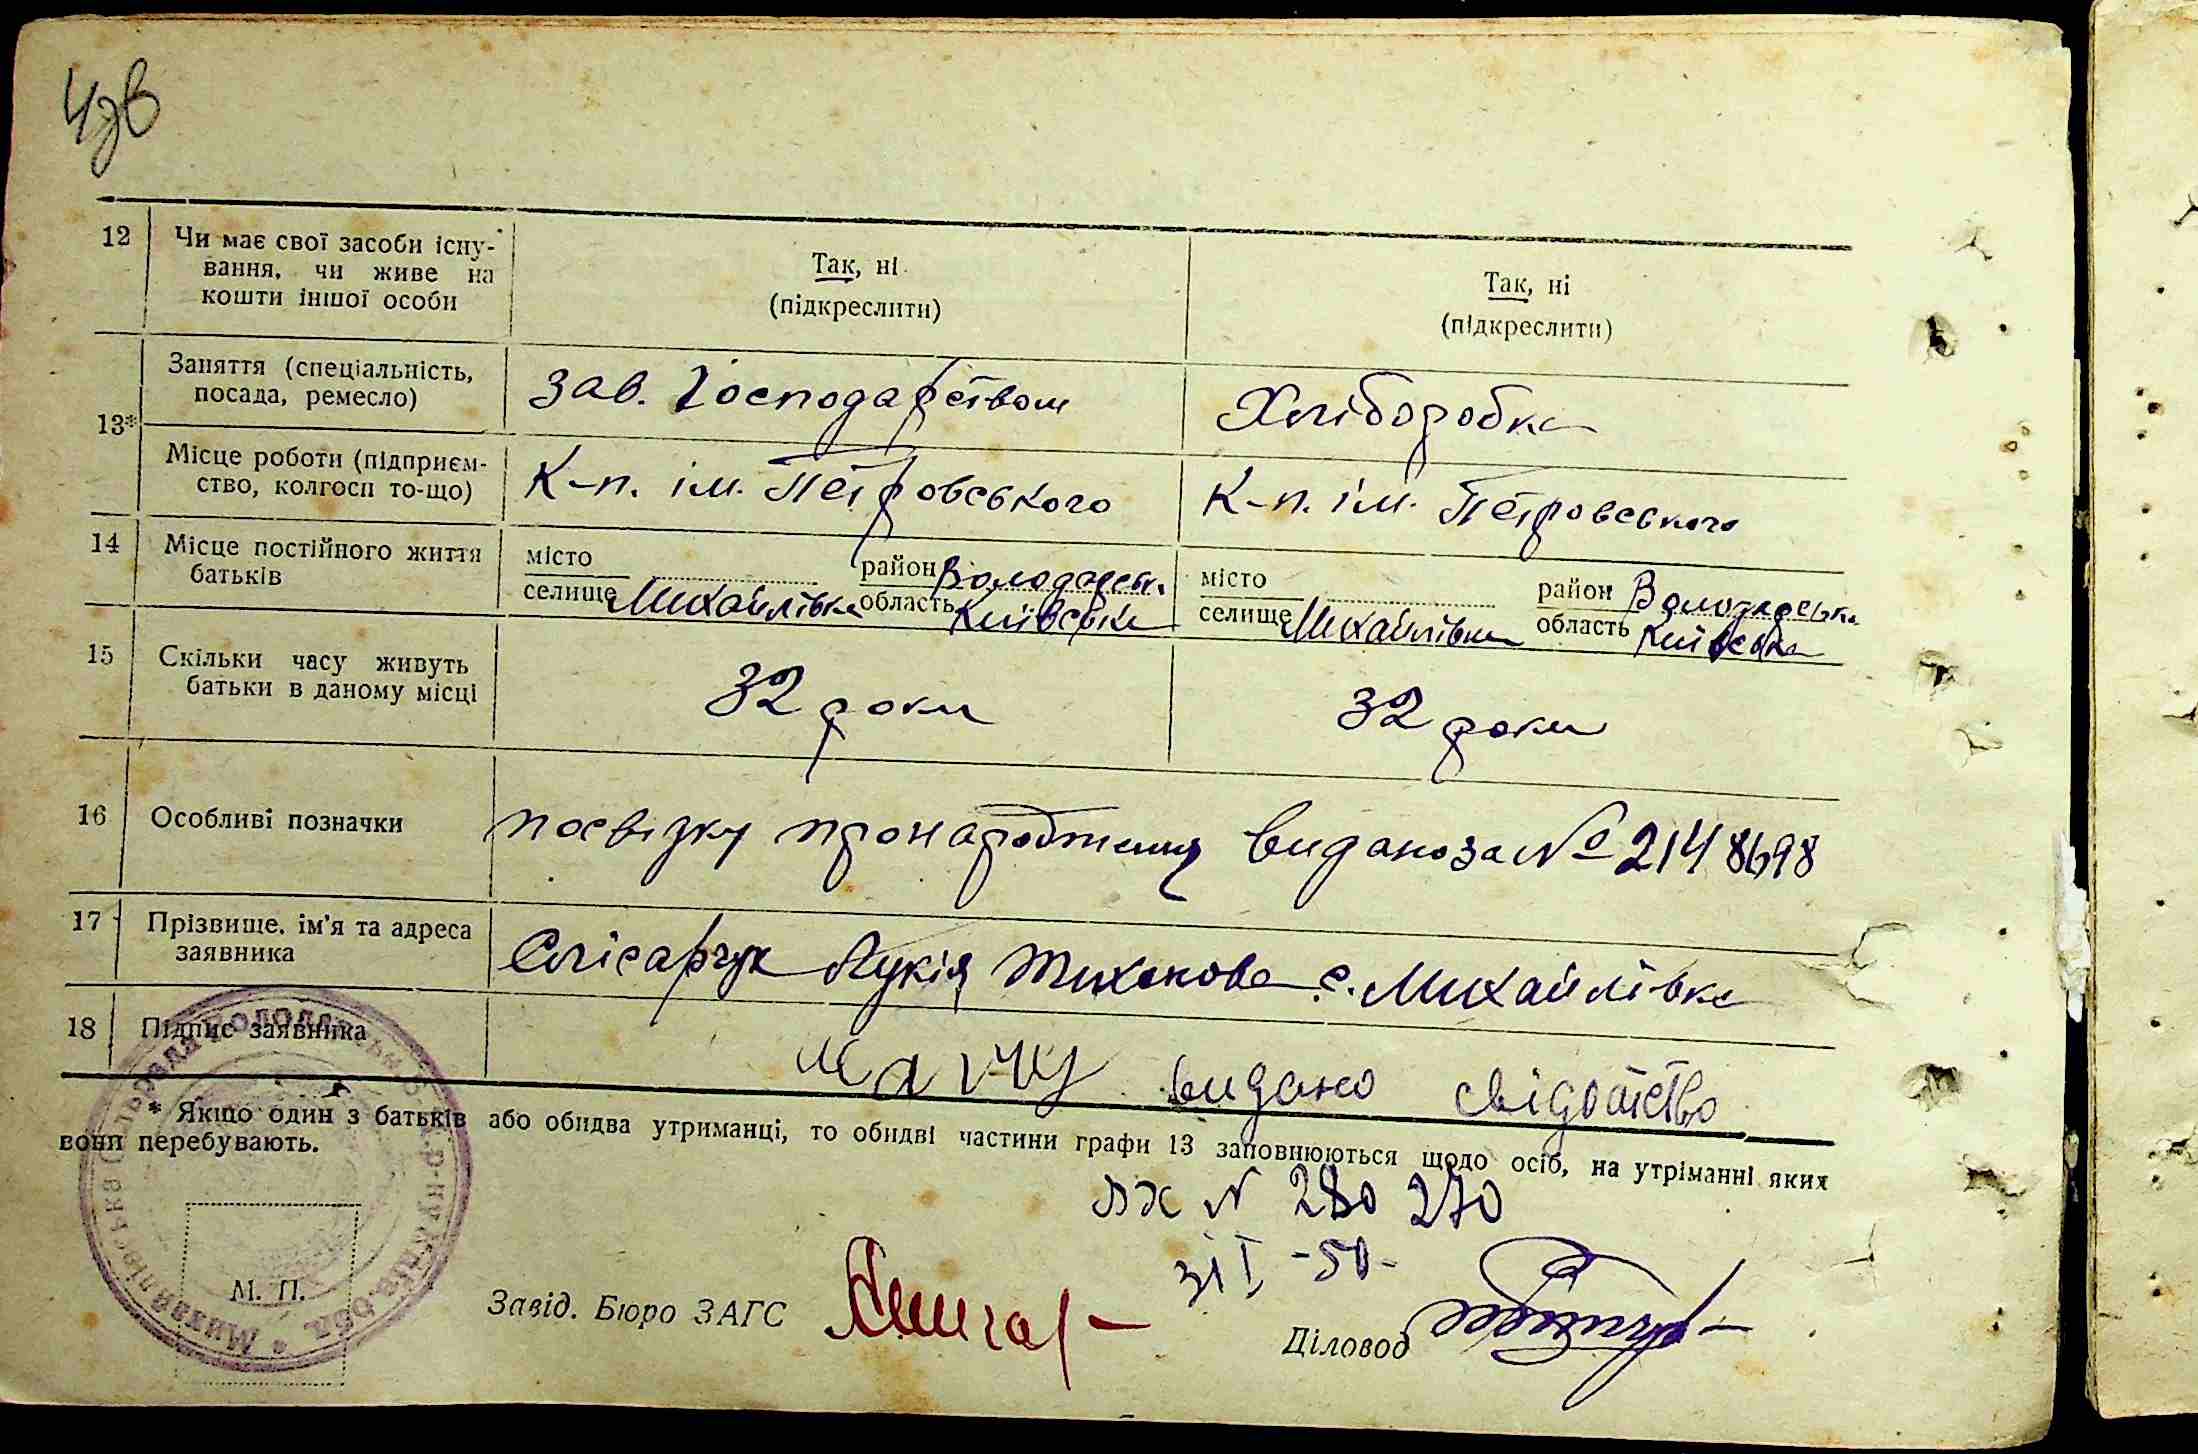 4зв
12 Чи має свої засоби існу-
вання, чи живе на
кошти іншої особи
Так, ні
(підкреслити)
Так, ні
(підкреслити)
13*
Заняття (спеціальність,
посада, ремесло)
зав. Господарством
Хліборобка
Місце роботи (підприєм-
ство, колгосп то-що)
К-п. ім. Петровського
К-п. ім. Петровського
14 Місце постійного життя
батьків
місто
селище Михайлівка
район Володарськ.
область Київська
місто
селище Михайлівка
район Володарська
область Київська
15 Скільки часу живуть
батьки в даному місці
32 роки
32 роки
16 Особливі позначки
посвізку про народження видано за № 2148698
17 Прізвище, ім'я та адреса
заявника
Слісарчук Лукія Тихонова с. Михайлівка
18 Підпис заявника
видано свідотство
* Якщо один з батьків або обидва утриманці, то обидві частини графи 13 заповнюються щодо осіб, на утриманні яких
вони перебувають.
N 280 270
31 I -50-
М. П.
Завід. Бюро ЗАГС
Діловод